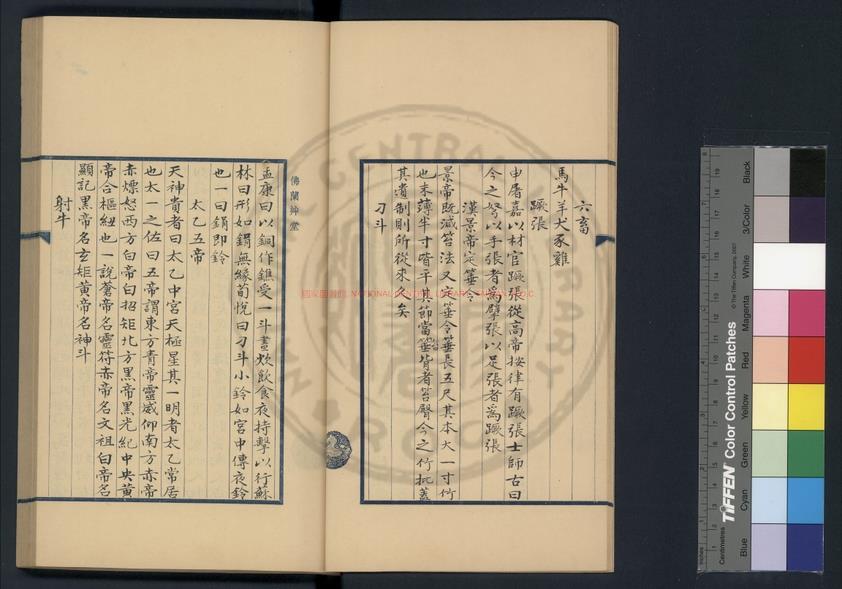 六畜
馬牛羊犬豕雞
蹶張
申屠嘉以材官蹶張從高帝按律有蹶張士師古曰
今之弩以手張者爲擘張以足張者爲蹶張
漢景帝定箠令
景帝既減笞法又定箠令箠長五尺其本大一寸竹
也末薄半寸皆平其節當箠背者笞臀今之竹杖蓋
其遺制則所從來久矣
刁斗
孟康曰以銅作鐎受一斗晝炊飲食夜持擊以行蘇
林曰形如鋗無緣荀悅曰刁斗小鈴如宮中傳夜鈴
也一曰鋗即鈴
太乙五帝
天神貴者曰太乙中宮天極星其一明者太乙常居
也太一之佐曰五帝謂東方青帝靈威仰南方赤帝
赤熛怒西方白帝白招矩北方黑帝黑光紀中央黃
帝合樞紐也一說蒼帝名靈符赤帝名文祖白帝名
顯記黑帝名玄矩黃帝名神斗
射牛
佛蘭艸堂
國家圖書館 NATIONAL CENTRAL LIBRARY
TIFFEN Color Control Patches
© The Tiffen Company, 2007
Centimetres
Inches
Blue
Cyan
Green
Yellow
Red
Magenta
White
3/Color
Black